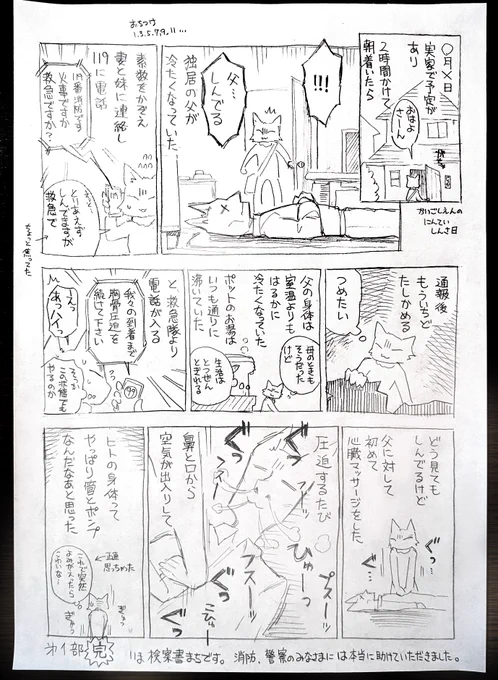 〇月×日
実家で予定が
あり
2時間かけて
朝着いたら
おはよ
さーん
かいごしえんの
にんてい
しんさ日
!!!
父…
しんでる
独居の父が
冷たくなっていた
おちつけ
1.3.5.7.9.11…
素数をかぞえ
妻と妹に連絡し
119に電話
119番消防です
火事ですか
救急ですか?
えっと
とりあえず
しんでますが
救急で
ちょっと焦ってた
通報後
もういちど
たしかめる
つめたい
父の身体は
室温よりも
はるかに
冷たくなっていた
母のときも
そうだった
けど
ポットのお湯は
いつも通りに
沸いていた
生活は
とつぜん
とぎれる
と、救急隊より
電話が入る
我々の到着まで
胸骨圧迫を
続けて下さい
えっ
あっハイッ
そっ
この状態でも
やるのか
どう見ても
しんでるけど
父に対して
初めて
心臓マッサージをした
ぐっ
ぐっ…
圧迫するたび
プスーッ
ひゅーっ
ぐっ
ぐっ
フスーッ
鼻と口から
空気が出入りして
ヒトの身体って
やっぱり管とポンプ
なんだなあと思った
正直
思っちゃった
これで突然
よみがえったら
こわいな…
ぎゅっ
ぎゅっ
第1部 完
いま検案書まちです。消防、警察のみなさまには本当に助けていただきました。